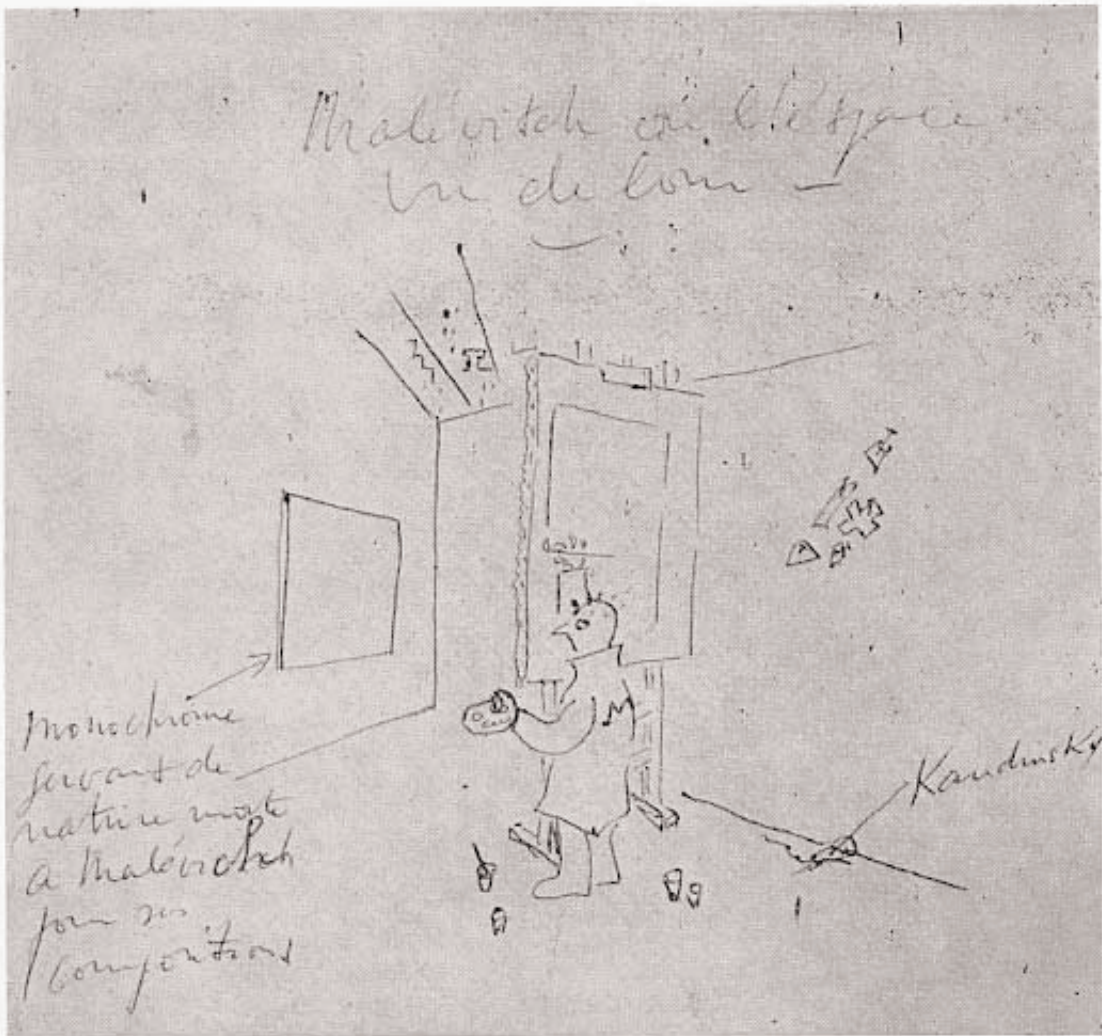 Malévitch ou l'espace
vu de loin –
Monochrome
servant de
nature morte
a Malévitch
pour ses
compositions
Kandinsky
M